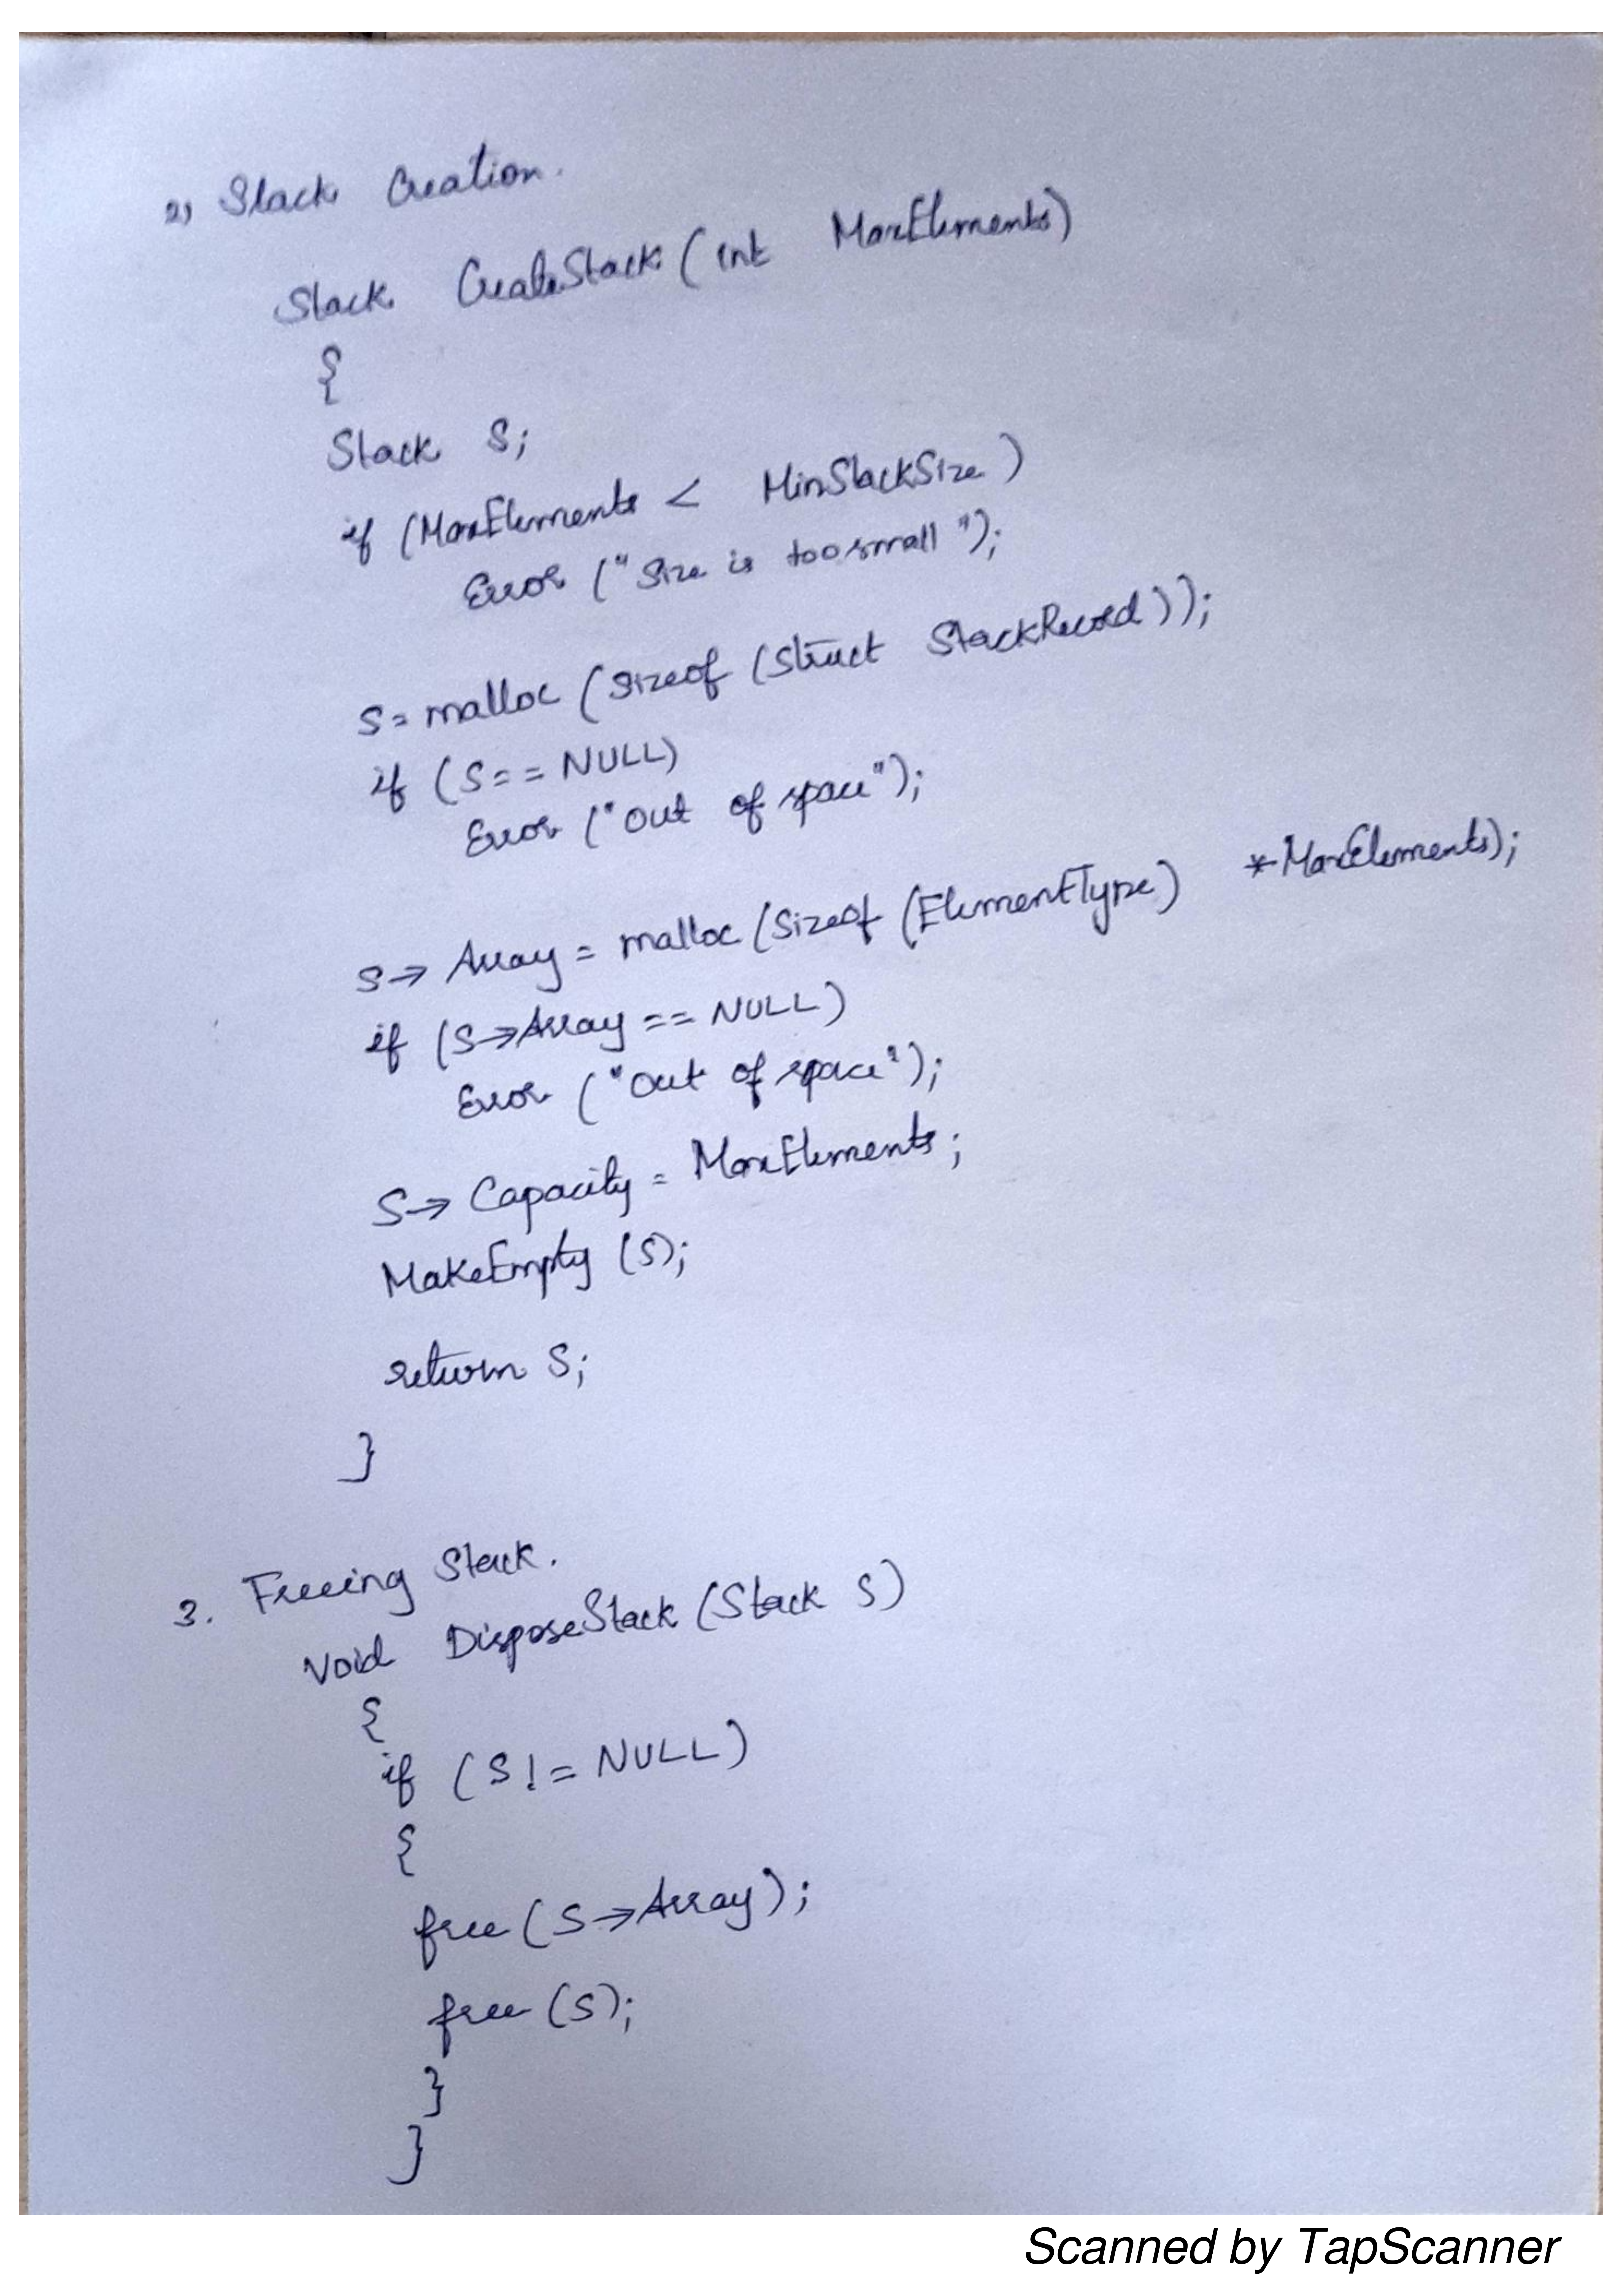 2) Stack Creation.
Stack CreateStack (int MaxElements)
{
Stack S;
if (MaxElements < MinStackSize)
Error ("Size is too small");
S = malloc (Sizeof (Struct StackRecord));
if (S == NULL)
Error ("Out of space");
S→ Array = malloc (Sizeof (ElementType) *MaxElements);
if (S→Array == NULL)
Error ("Out of space");
S→ Capacity = MaxElements;
MakeEmpty (S);
return S;
}
3. Freeing Stack.
Void DisposeStack (Stack S)
{
if (S != NULL)
{
free (S→Array);
free (S);
}
}
Scanned by TapScanner